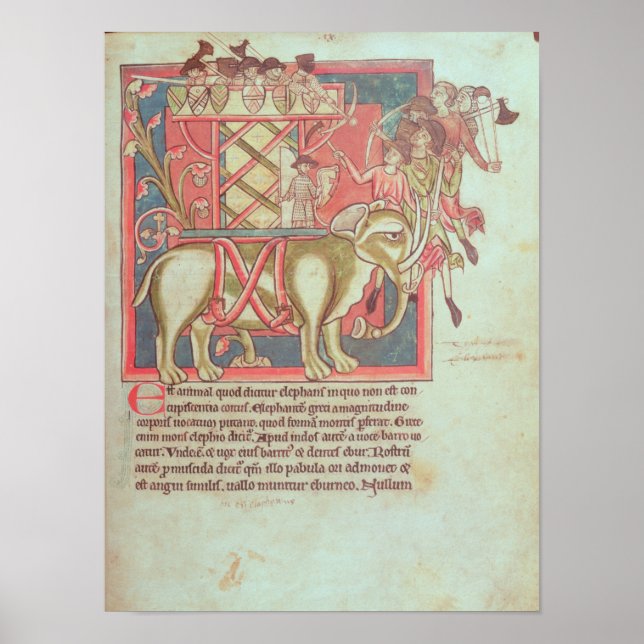 Est animal quod dicitur elephans in quo non est con
cupiscentia coitus. Elephantē greci a magnitudine
corporis vocatum putant, quod formā montis p̄ferat. Grece
enim mons elephio dicit᷒. Apud indos autē a voce barro uo
catur. Vnde & uox eius barrit᷒ & dentes ebur. Rostrū
autē promuscida dicit᷒ qm̄ illo pabula ori admouet &
est angui similis, uallo munitur eburneo. Nullum